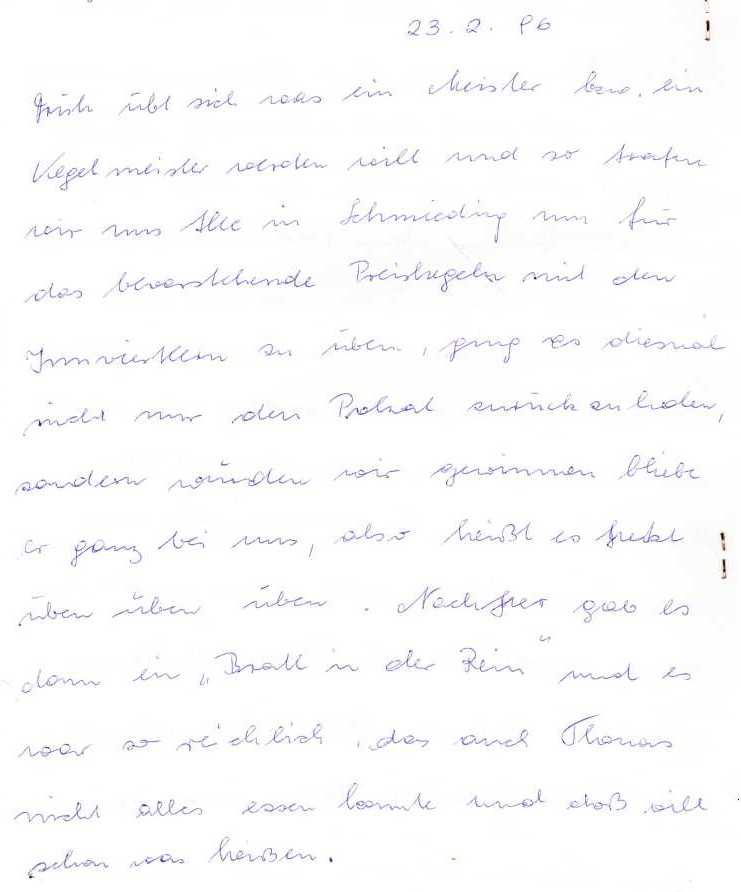 23.2.96
Früh übt sich was ein Meister bzw. ein
Kegelmeister werden will und so trafen
wir uns Alle in Schmieding um für
das bevorstehende Preiskegeln mit den
Innviertlern zu üben, ging es diesmal
nicht nur den Pokal zurückzuholen,
sondern würden wir gewinnen bliebe
er ganz bei uns, also heißt es jetzt
üben üben üben. Nachher gab es
dann ein „Bratl in der Rein" und es
war so reichlich, das auch Thomas
nicht alles essen konnte und daß will
schon was heißen.